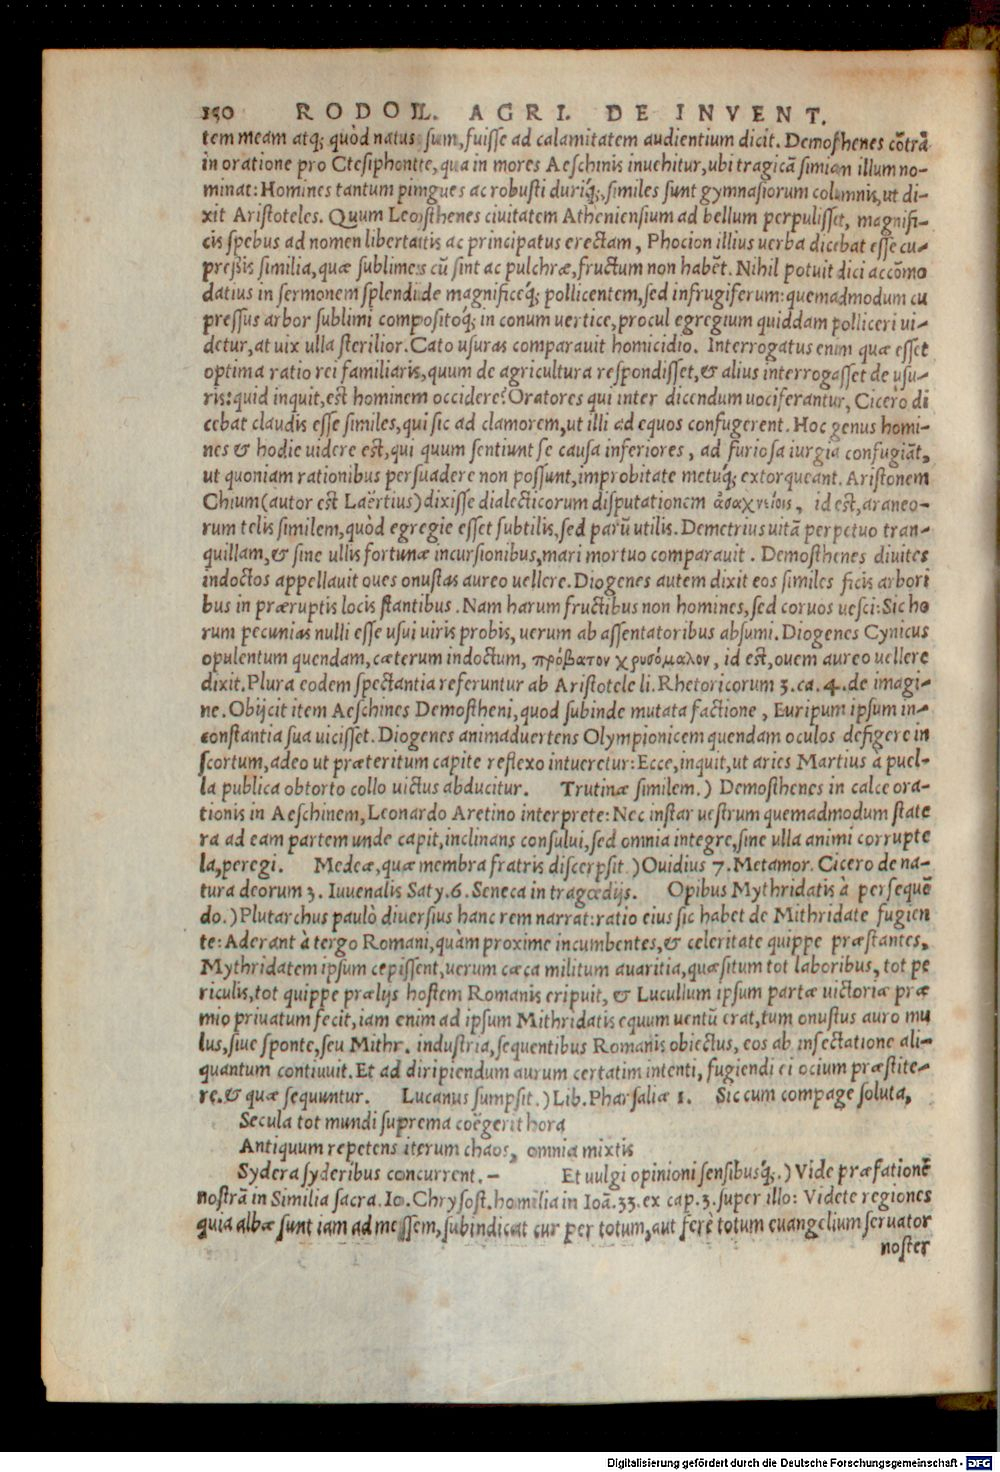 150 RODOL. AGRI. DE INVENT.
tem meam atq; quòd natus sum, fuisse ad calamitatem audientium dicit. Demosthenes cōtrà
in oratione pro Ctesiphontte, qua in mores Aeschinis inuehitur, ubi tragicā simiam illum no-
minat: Homines tantum pingues ac robusti duriq́;, similes sunt gymnasiorum columnis, ut di-
xit Aristoteles. Quum Leosthenes ciuitatem Atheniensium ad bellum perpulisset, magnifi-
cis spebus ad nomen libertatis ac principatus erectam, Phocion illius uerba dicebat esse cu-
pressis similia, quæ sublimes cū sint ac pulchræ, fructum non habēt. Nihil potuit dici accōmo
datius in sermonem splendide magnificeq́; pollicentem, sed infrugiferum: quemadmodum cu
pressus arbor sublimi compositoq́; in conum uertice, procul egregium quiddam polliceri ui-
detur, at uix ulla sterilior. Cato usuras comparauit homicidio. Interrogatus enim quæ esset
optima ratio rei familiaris, quum de agricultura respondisset, & alius interrogasset de usu-
ris: quid inquit, est hominem occidere? Oratores qui inter dicendum uociferantur, Cicero di
cebat claudis esse similes, qui sic ad clamorem, ut illi ad equos confugerent. Hoc genus homi-
nes & hodie uidere est, qui quum sentiunt se causa inferiores, ad furiosa iurgia confugiāt,
ut quoniam rationibus persuadere non possunt, improbitate metuq́; extorqueant. Aristonem
Chium (autor est Laërtius) dixisse dialecticorum disputationem id est, araneo-
rum telis similem, quòd egregie esset subtilis, sed parū utilis. Demetrius uitā perpetuo tran-
quillam, & sine ullis fortunæ incursionibus, mari mortuo comparauit. Demosthenes diuites
indoctos appellauit oues onustas aureo uellere. Diogenes autem dixit eos similes ficis arbori
bus in præruptis locis stantibus. Nam harum fructibus non homines, sed coruos uesci: Sic ho
rum pecunias nulli esse usui uiris probis, uerum ab assentatoribus absumi. Diogenes Cynicus
opulentum quendam, cæterum indoctum, πρόβατον χρυσόμαλον, id est, ouem aureo uellere
dixit. Plura eodem spectantia referuntur ab Aristotele li. Rhetoricorum 3. ca. 4. de imagi-
ne. Obijcit item Aeschines Demostheni, quod subinde mutata factione, Euripum ipsum in-
constantia sua uicisset. Diogenes animaduertens Olympionicem quendam oculos defigere in
scortum, adeo ut præteritum capite reflexo intueretur: Ecce, inquit, ut aries Martius à puel-
la publica obtorto collo uictus abducitur. Trutinæ similem.) Demosthenes in calce ora-
tionis in Aeschinem, Leonardo Aretino interprete: Nec instar uestrum quemadmodum state
ra ad eam partem unde capit, inclinans consului, sed omnia integre, sine ulla animi corrupte
la, peregi. Medeæ, quæ membra fratris discerpsit.) Ouidius 7. Metamor. Cicero de na-
tura deorum 3. Iuuenalis Saty. 6. Seneca in tragœdijs. Opibus Mythridatis à persequē
do.) Plutarchus paulò diuersius hanc rem narrat: ratio eius sic habet de Mithridate fugien
te: Aderant à tergo Romani, quàm proxime incumbentes, & celeritate quippe præstantes,
Mythridatem ipsum cepissent, uerum cæca militum auaritia, quæsitum tot laboribus, tot pe
riculis, tot quippe prælijs hostem Romanis eripuit, & Lucullum ipsum partæ uictoriæ præ
mio priuatum fecit, iam enim ad ipsum Mithridatis equum uentū erat, tum onustus auro mu
lus, siue sponte, seu Mithr. industria, sequentibus Romanis obiectus, eos ab insectatione ali-
quantum continuit. Et ad diripiendum aurum certatim intenti, fugiendi ei ocium præstite-
re. & quæ sequuntur. Lucanus sumpsit.) Lib. Pharsaliæ 1. Sic cum compage soluta,
Secula tot mundi suprema coëgerit hora
Antiquum repetens iterum chaos, omnia mixtis
Sydera syderibus concurrent. - Et uulgi opinioni sensibusq́;.) Vide præfationē
nostrā in Similia sacra. Io. Chrysost. homilia in Ioā. 33. ex cap. 3. super illo: Videte regiones
quia albæ sunt iam ad messem, subindicat cur per totum, aut ferè totum euangelium seruator
noster
Digitalisierung gefördert durch die Deutsche Forschungsgemeinschaft - DFG